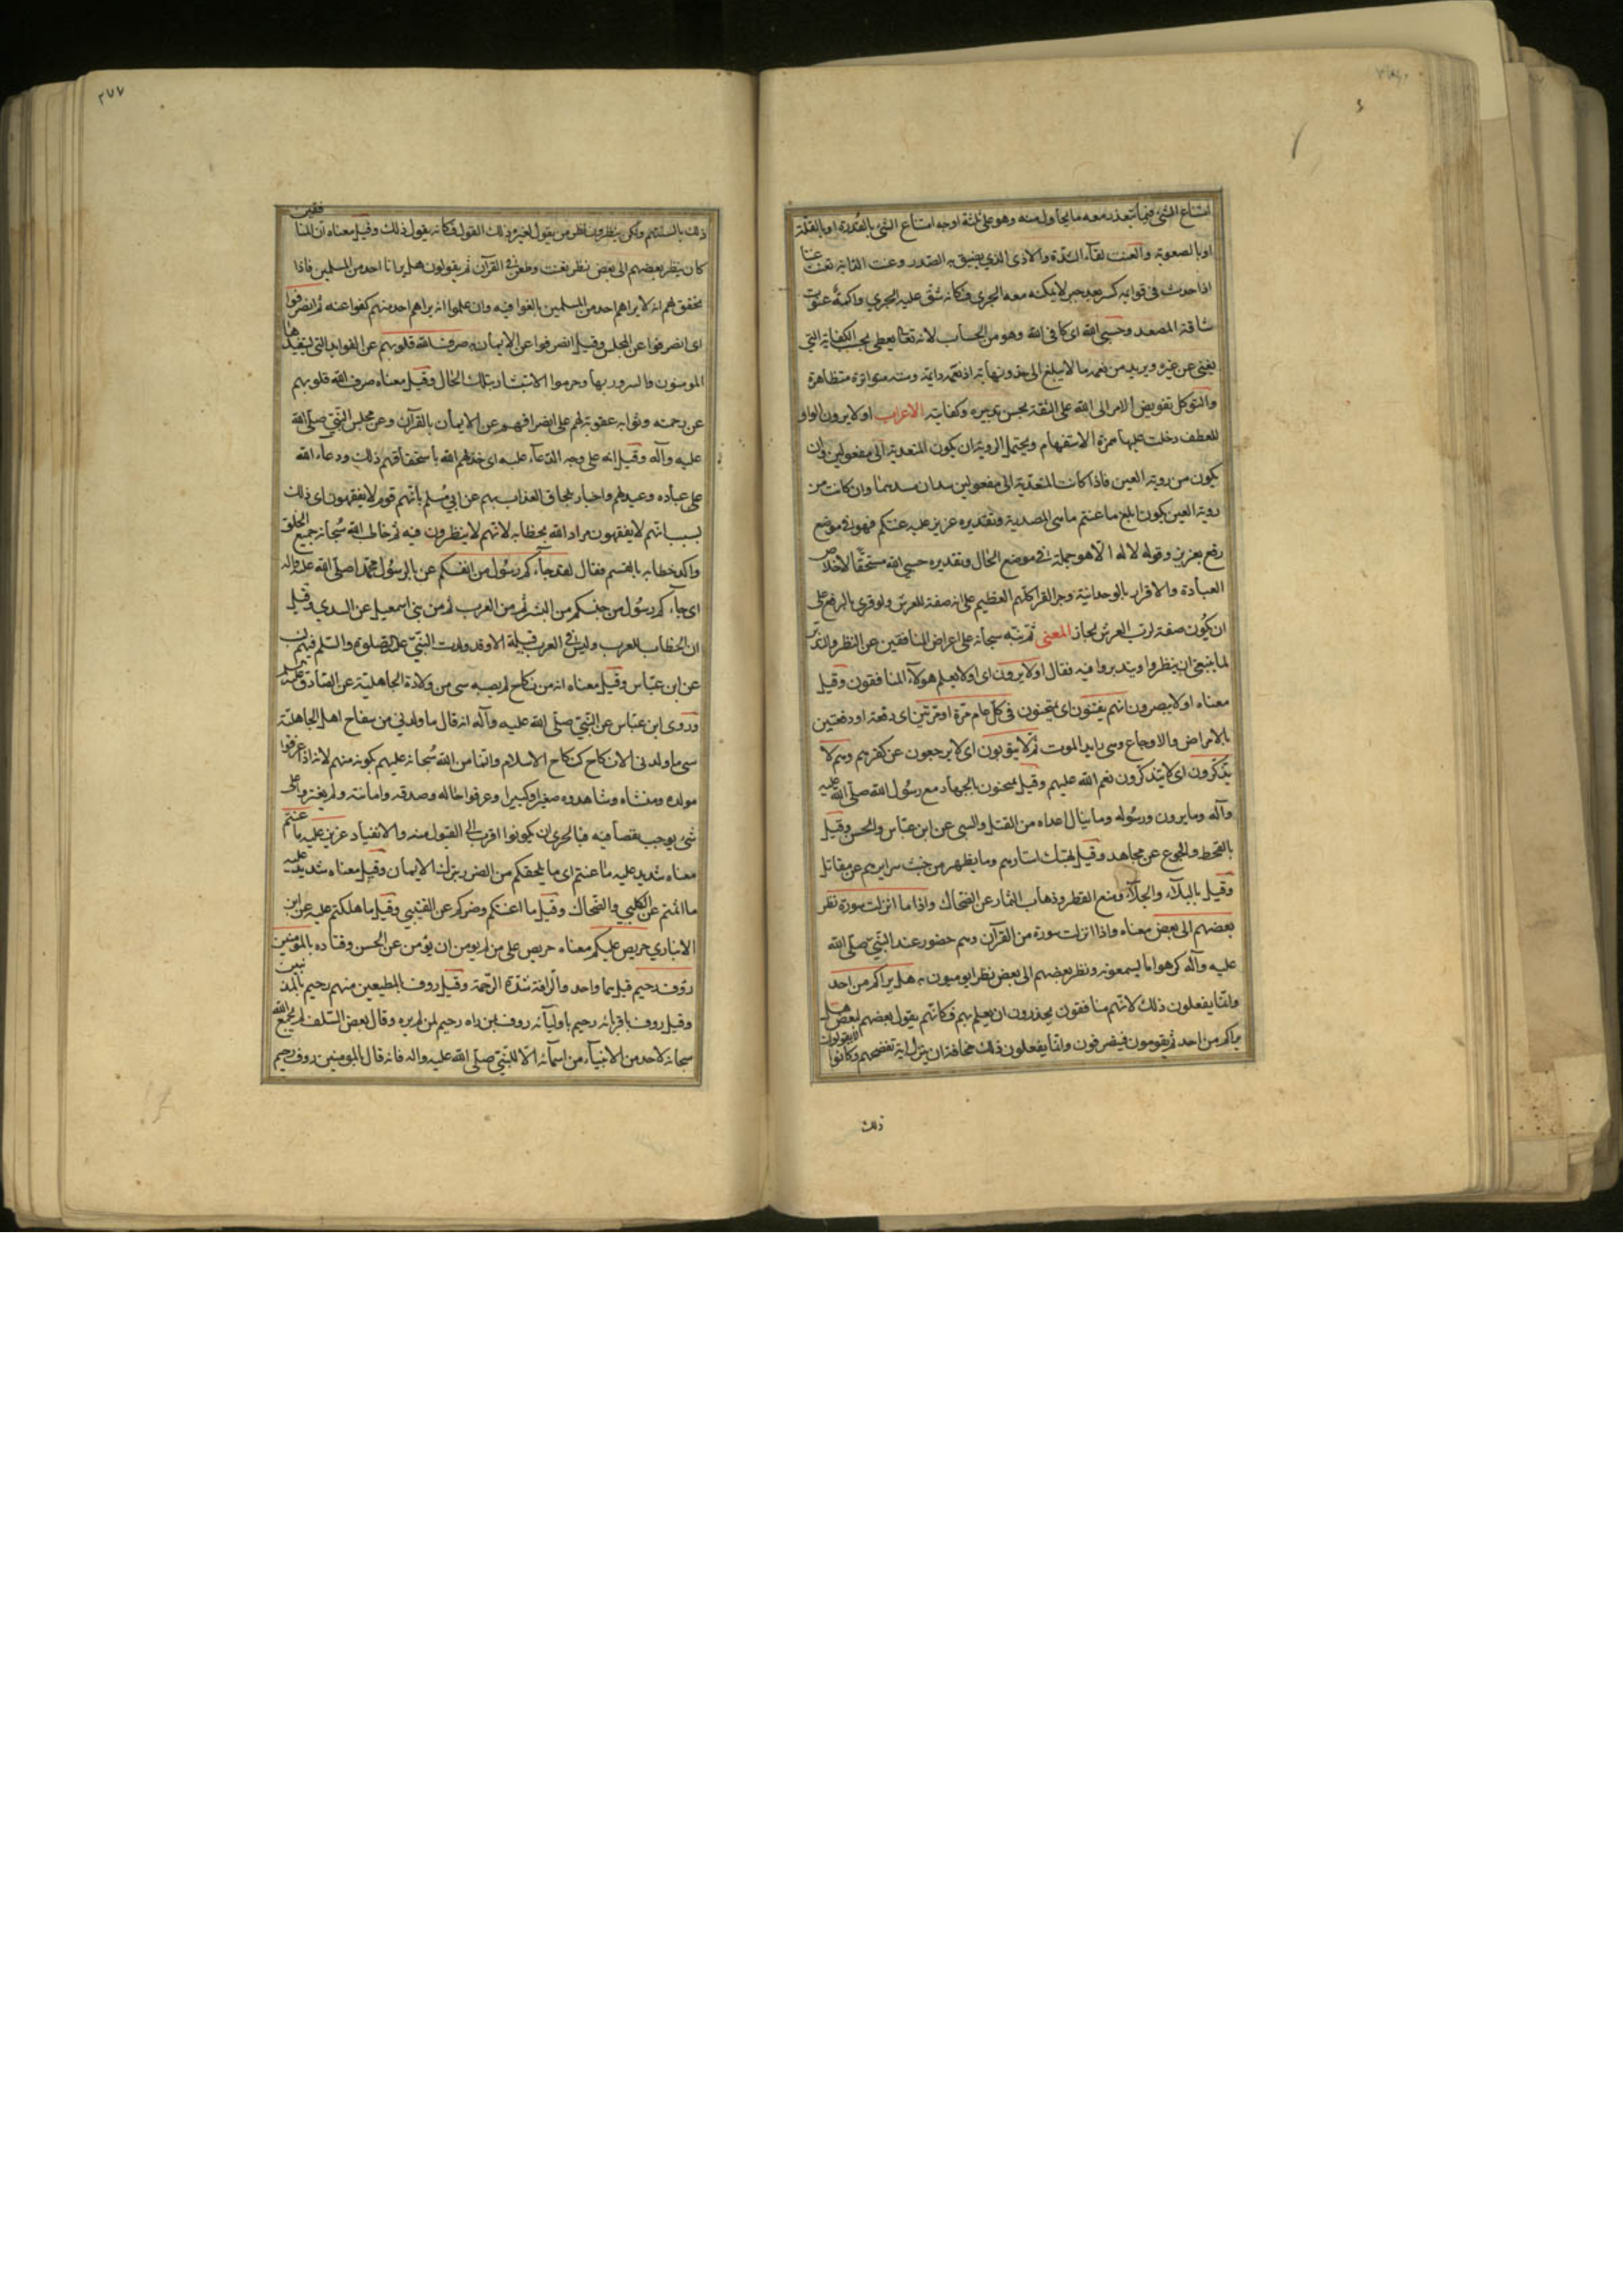 امتناع الشئ فيما يتعذر معه ما يحاول منه وهو على ثلثة اوجه امتناع الشئ بالقدرة او بالقلة
او بالصعوبة والعنت لقاء الشدة والاذى الذي يضيق به الصدر وعنت الدابة تعنت عنتا
اذا حدث فى قوايمه كسر بعد جبر لا يمكنه معه الجري فكانه شق عليه الجري واكمة عنوت
شاقة المصعد وحسبى الله اى كافى الله وهو من الحساب لانه تعالى يعطى بحسب الكفاية التي
يغنى عن غيره ويزيد من نعمه ما لا يبلغ الى حد ونهاية اذ نعمه دايمة ومننه متواترة متظاهرة
والتوكل تفويض الامر الى الله على الثقة بحسن تدبيره وكفايته الاعراب اولا يرون الواو
للعطف دخلت عليها همزة الاستفهام ويحتمل الروية ان يكون المتعدية الى مفعولين وان
يكون من روية العين فاذا كانت المتعدية الى مفعولين سد ان مسدهما وان كانت من
روية العين يكون ابلغ ما عنتم ما هى المصدرية وتقديره عزيز عليه عنتكم فهو فى موضع
رفع بعزيز وقوله لا اله الا هو جملة فى موضع الحال وتقديره حسبي الله مستحقا لاخلاص
العبادة والاقرار بالوحدانية وجر القراء كلهم العظيم على انه صفة للعرش ولو قرى بالرفع على
ان يكون صفة لرب العرش لجاز المعنى ثم نبه سبحانه على اعراض المنافقين عن النظر والتدبر
لما ينبغى ان ينظروا ويتدبروا فيه فقال اولا يرون اى اولا يعلم هولاء المنافقون وقيل
معناه اولا يبصرون انهم يفتنون اى يمتحنون فى كل عام مرة او مرتين اى دفعة او دفعتين
بالامراض والاوجاع وهى رايد الموت ثم لا يتوبون اى لا يرجعون عن كفرهم وهم لا
يتذكرون اى لا يتذكرون نعم الله عليهم وقيل يمتحنون بالجهاد مع رسول الله صلى الله عليه
وآله وما يرون ورسوله وما ينال اعداءه من القتل والسبى عن ابن عباس والحسن وقيل
بالقحط والجوع عن مجاهد وقيل بهتك استارهم وما يظهر من خبث سرايرهم عن مقاتل
وقيل بالبلاء والجلاء ومنع القطر وذهاب الثمار عن الضحاك واذا ما انزلت سورة نظر
بعضهم الى بعض معناه واذا انزلت سورة من القرآن وهم حضور عند النبي صلى الله
عليه وآله كرهوا ما يسمعونه ونظر بعضهم الى بعض نظرا يومون به هل يراكم من احد
وانما يفعلون ذلك لانهم منافقون يحذرون ان يعلم بهم فكانهم يقول بعضهم لبعض هل
يراكم من احد ثم يقومون فينصرفون وانما يفعلون ذلك مخافة ان ينزل اية تفضحهم وكانوا لا يقولون
ذلك
٢٧٧
ذلك بالسنتهم ولكن ينظرون نظر من يقول لغيره ذلك القول فكانه يقول ذلك وقيل معناه ان المنافقين
كان ينظر بعضهم الى بعض نظر تعنت وطعن فى القرآن ثم يقولون هل يرانا احد من المسلمين فاذا
تحقق لهم انه لا يراهم احد من المسلمين بالغوا فيه وان علموا انه يراهم احد منهم كفوا عنه ثم انصرفوا
اى انصرفوا عن المجلس وقيل انصرفوا عن الايمان به صرف الله قلوبهم عن الفوايد التي يستفيدها
المومنون والسرور بها وحرموا الاستبشار بتلك الحال وقيل معناه صرف الله قلوبهم
عن رحمته وثوابه عقوبة لهم على انصرافهم عن الايمان بالقرآن وعن مجلس النبي صلى الله
عليه وآله وقيل انه على وجه الدعاء عليه اى خذلهم الله باستحقاقهم ذلك ودعاء الله
على عباده وعيد لهم واخبار بلحاق العذاب بهم عن ابي مسلم بانهم قوم لا يفقهون اى ذلك
بسبب انهم لا يفقهون مراد الله بخطابه لانهم لا ينظرون فيه ثم خاطب الله سبحانه جميع الخلق
واكد خطابه بالقسم فقال لقد جاءكم رسول من انفسكم عنى بالرسول محمدا صلى الله عليه واله
اى جاءكم رسول من جنسكم من البشر ثم من العرب ثم من بنى اسمعيل عن السدي وقيل
ان الخطاب للعرب وليس فى العرب قبيلة الا وقد ولدت النبي عليه الصلوة والسلم فيهم نسب
عن ابن عباس وقيل معناه انه من نكاح لم يصبه شى من ولادة الجاهلية عن الصادق عليه السلم
وروى ابن عباس عن النبي صلى الله عليه وآله انه قال ما ولدني من سفاح اهل الجاهلية
شى ما ولدنى الا نكاح كنكاح الاسلام وانما من الله سبحانه عليهم بكونه منهم لانه اذا عرفوا
مولده ومنشاه وشاهدوه صغيرا وكبيرا وعرفوا حاله وصدقه وامانته ولم يعثروا على
شى يوجب نقصا فيه فبالحرى ان يكونوا اقرب الى القبول منه والانقياد عزيز عليه ما عنتم
معناه شديد عليه ما عنتم اى ما يلحقكم من الضرر بترك الايمان وقيل معناه شديد عليه
ما اثمتم عن الكلبي والضحاك وقيل ما اعنتكم وضركم عن القتيبي وقيل ما هلكتم عليه عن ابن
الانباري حريص عليكم معناه حريص على من لم يومن ان يؤمن عن الحسن وقتاده بالمؤمنين
رؤف رحيم قيل هما واحد والرافة شدة الرحمة وقيل روف بالمطيعين منهم رحيم بالمذنبين
وقيل روف باقربائه رحيم باوليائه روف بمن راه رحيم لمن لم يره وقال بعض السلف لم يجمع الله
سبحانه لاحد من الانبياء من اسمائه الا للنبي صلى الله عليه واله فانه قال بالمومنين روف رحيم